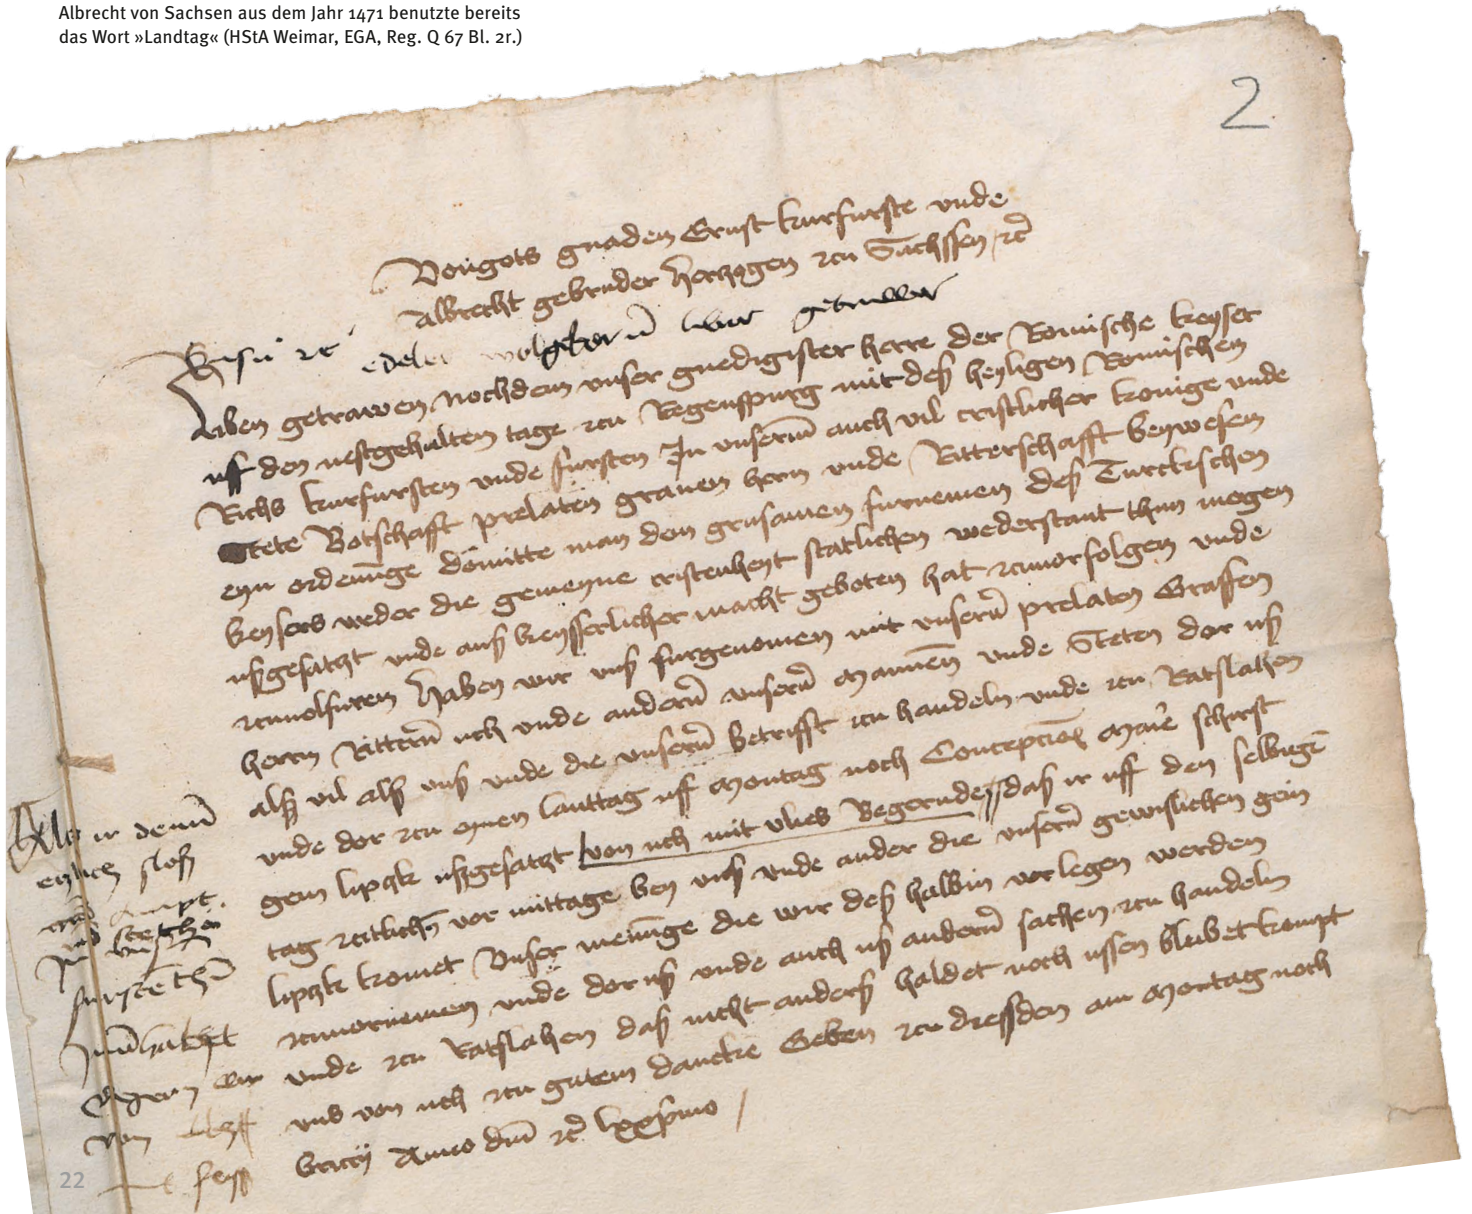 Albrecht von Sachsen aus dem Jahr 1471 benutzte bereits
das Wort »Landtag« (HStA Weimar, EGA, Reg. Q 67 Bl. 2r.)
2
Vongots gnaden Ernst kurfurste vnde
Albrecht gebruder Hertzogen zcu Sachssen
edeler wolgeborn liber getruwer
Liben getrawen Nochdem vnser gnedigister herre der Romische keyser
uff den nestgehalten tage zcu Regenspurg mit deß heyligen Romischen
Richs kurfursten vnde fursten In vnserm auch vil cristlicher konige vnde
Stete Botschafft prelaten grauen hern vnde Ritterschafft beywesen
eyn ordenunge domitte man den grusamen furnemen deß Turckischen
keysers weder die gemeyne cristenheyt statlichen wederstant thun mogen
ußgesatzt vnde auß keysserlicher macht geboten hat zcuuorfolgen vnde
zcuuolfuren Haben wir vnß furgenomen mit vnsern prelaten Graffen
herrn Rittern uch vnde andern vnsern Mannen vnde Steten dor uß
alß vil alß vnß vnde die vnsern betrifft zcu handeln vnde zcu Ratslahen
vnde dor zcu eynen lanttag uff Montag noch Conceptionis Marie schirst
gein lipczk ußgesatzt von uch mit vlies Begernde daß ir uff den selbigen
tag zcitlichen vor mittage bey vnß vnde ander die vnsern gewislichen gein
lipczk komet Vnser meinunge die wir deß halbin vorlegen werden
zcuuornemen vnde dor uß vnde auch uß andern sachen zcu handeln
vnde zcu Ratslahen daß nicht anderß haldet noch ussen blibet kompt
vns von uch zcu gutem dancke Geben zcu dressden am Montag noch
Anno dm lxxprimo
Als ir denn
etzlich sloß
ampt
von
22